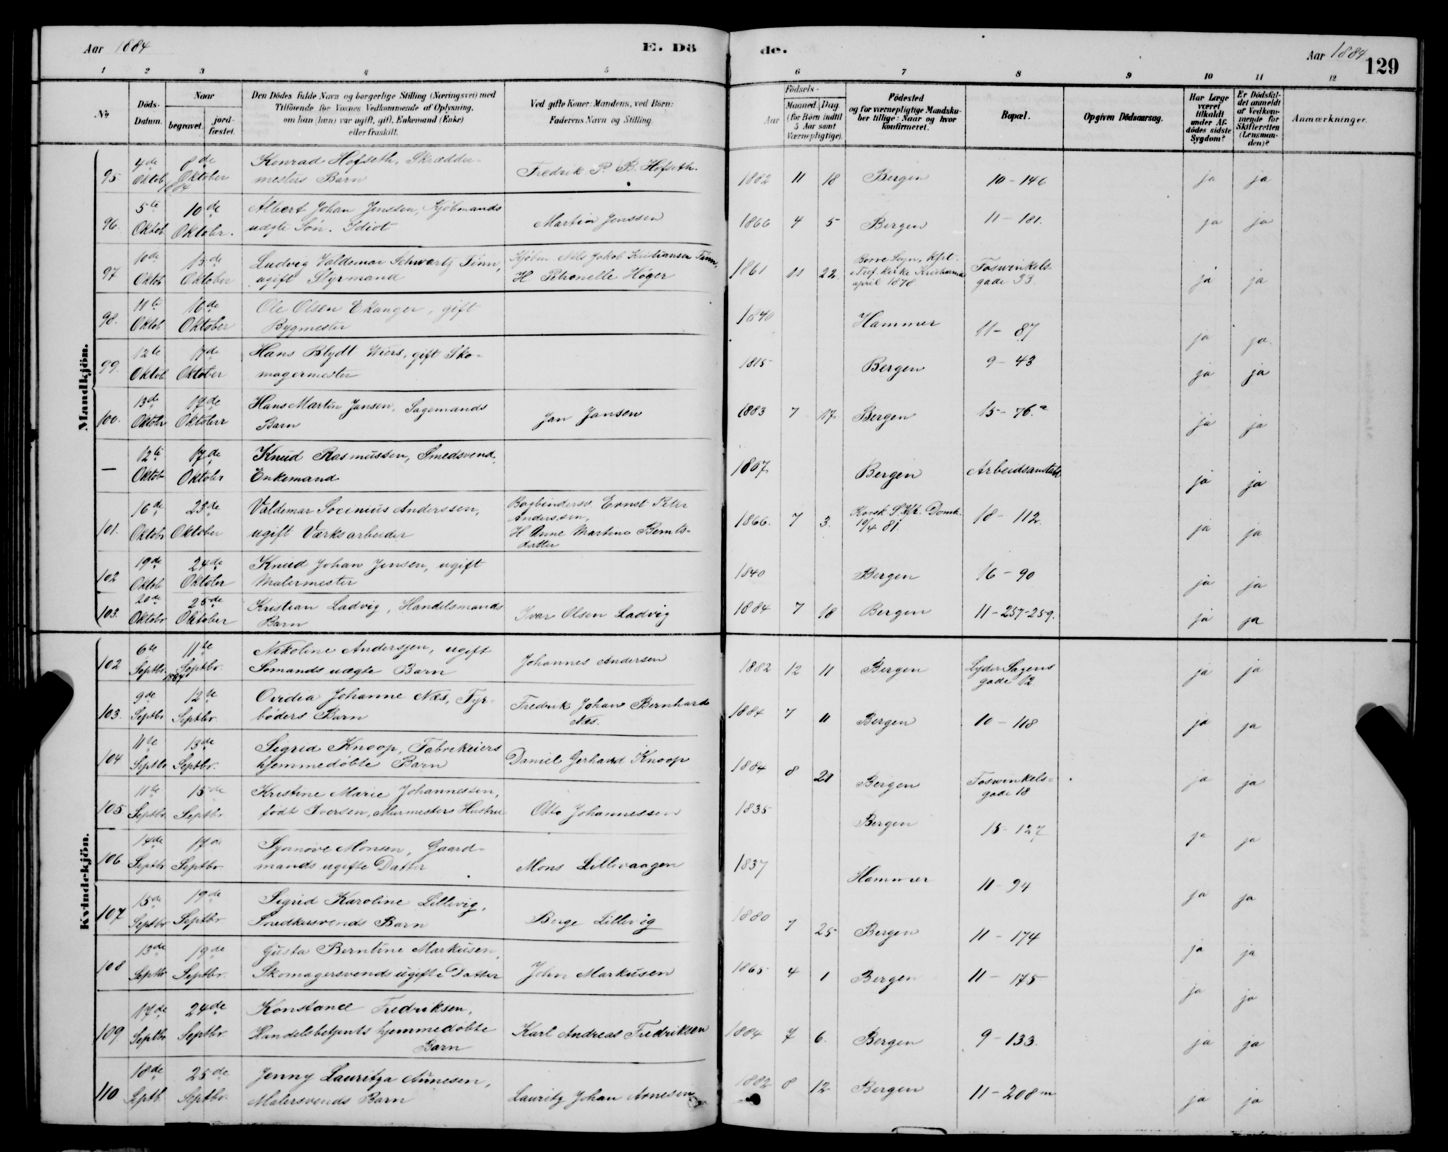 Aar 1884
E. Dö
de.
Aar 1884
129
1 2 3 4 5 6 7 8 9 10 11 12
No.
Döds-Datum.
Naar
begravet.
jord-fæstet.
Den Dödes fulde Navn og borgerlige Stilling (Næringsvei) med
Tilföiende for Voxnes Vedkommende af Oplysning,
om han (hun) var ugift, gift, Enkemand (Enke)
eller fraskilt.
Ved gifte Koner: Mandens, ved Börn:
Faderens Navn og Stilling.
Födsels-
Aar
Maaned Dag
(for Börn indtil
5 Aar samt
Værnepligtige).
Födested
og for værnepligtige Mandska-
ber tillige: Naar og hvor
konfirmeret.
Bopæl.
Opgiven Dödsaarsag.
Har Læge
været
tilkaldt
under Af-
dödes sidste
Sygdom?
Er Dödsfal-
det anmeldt
af Vedkom-
mende for
Skifteretten
(Lensman-
den)?
Anmærkninger.
Mandkjön.
95. 4de Oktob 1884 8de Oktober Konrad Hofseth, Skrædder-
mesters Barn Fredrik P. B. Hofseth 1882 11 18 Bergen 10-146 ja ja
96. 5te Oktob 10de Oktobr. Albert Johan Jenssen, Kjöbmands
udgte Sön. Idiot Martin Jenssen 1866 4 5 Bergen 11-181 ja ja
97. 10de Oktbr 15de Oktober Ludvig Valdemar Schwartz Finn,
ugift Styrmand Kjöbm Nils Jakob Kristiansen Finn,
H. Petronelle Höger 1861 11 22 kirke Kristiania
april 1878 Foswinkels
gade 33 ja ja
98. 11te Oktob 16de Oktober Ole Olsen Ekanger, gift
Bygmester 1840 Hammer 11-87 ja ja
99. 12te Oktob 17de Oktober Hans Blydt Wiers, gift Sko-
magermester 1815 Bergen 9-43 ja ja
100. 13de Oktobr 17de Oktober Hans Martin Jansen, Sagemands
Barn Jan Jansen 1883 7 17 Bergen 15-76.a ja ja
— 12te Oktob 17de Oktober Knud Rasmussen, Smedsvend,
Enkemand 1807 Bergen Arbeidsanstalt ja ja
101. 16de Oktobr 23de Oktober Valdemar Socinius Anderssen,
ugift Værksarbeider Bogbinder Ernst Peter
Anderssen,
H. Anne Martina Bernts-
datter 1866. 7 3. Korsk. Domk.
10/4 81 18-112 ja ja
102 19de Oktob 24de Oktober Knud Johan Jensen, ugift
Malermester 1840 Bergen 16-90 ja ja
103. 20de Oktobr 25de Oktober Kristian Ladvig, Handelsmands
Barn Ivar Olsen Ladvig 1884 7 18 Bergen 11-257-259. ja ja
Kvindekjön.
102 6te Septbr 1884 11te Septbr Nikoline Andersen, ugift
Sömands uægte Barn Johannes Andersen 1882 12 11 Bergen Lyder Sagens
gade 12 ja ja
103. 9de Septbr 12te Septbr. Ovidia Johanne Næs, Fyr-
böders Barn Fredrik Johan Bernhard
Næs. 1884 7 11 Bergen 10-118 ja ja
104 11te Septbr 13de Septbr. Sigrid Knoop, Fabrikeiers
hjemmedöbte Barn Daniel Gerhard Knoop 1884 8 21 Bergen Foswinkels-
gade 18 ja ja
105 11te Septbr. 15de Septbr. Kristine Marie Johannessen,
födt Iversen, Murmesters Hustru Otto Johannessen 1835 Bergen 15-127 ja ja
106 14de Septbr 17de Septbr Synnove Monsen, Gaard-
mands ugifte Datter Mons Lillevaagen 1837 Hammer 11-94 ja ja
107 15de Septbr 19de Septbr Sigrid Karoline Lillevig,
Snedkersvends Barn Berge Lillevig 1880 7 25 Bergen 11-174 ja ja
108 13de Septbr 19de Septbr. Gusta Berntine Markusen,
Skomagersvends ugifte Datter John Markusen 1865 4 1 Bergen 11-175 ja ja
109 17de Septbr 24de Septbr Konstance Fredriksen,
Handelsbetjents hjemmedöbte
Barn Karl Andreas Fredriksen 1884 7 6. Bergen 9-133. ja ja
110 18de Septb. 25de Septbr. Jenny Lauritza Annesen,
Malersvends Barn Lauritz Johan Arnesen 1882 8 12 Bergen 11-208 m ja ja